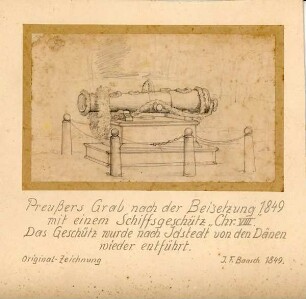 Preußers Grab nach der Beisetzung 1849
mit einem Schiffsgeschütz „Chr. VIII“
Das Geschütz wurde nach Idstedt von den Dänen
wieder entführt.
Original-Zeichnung J.F. Baasch 1849.